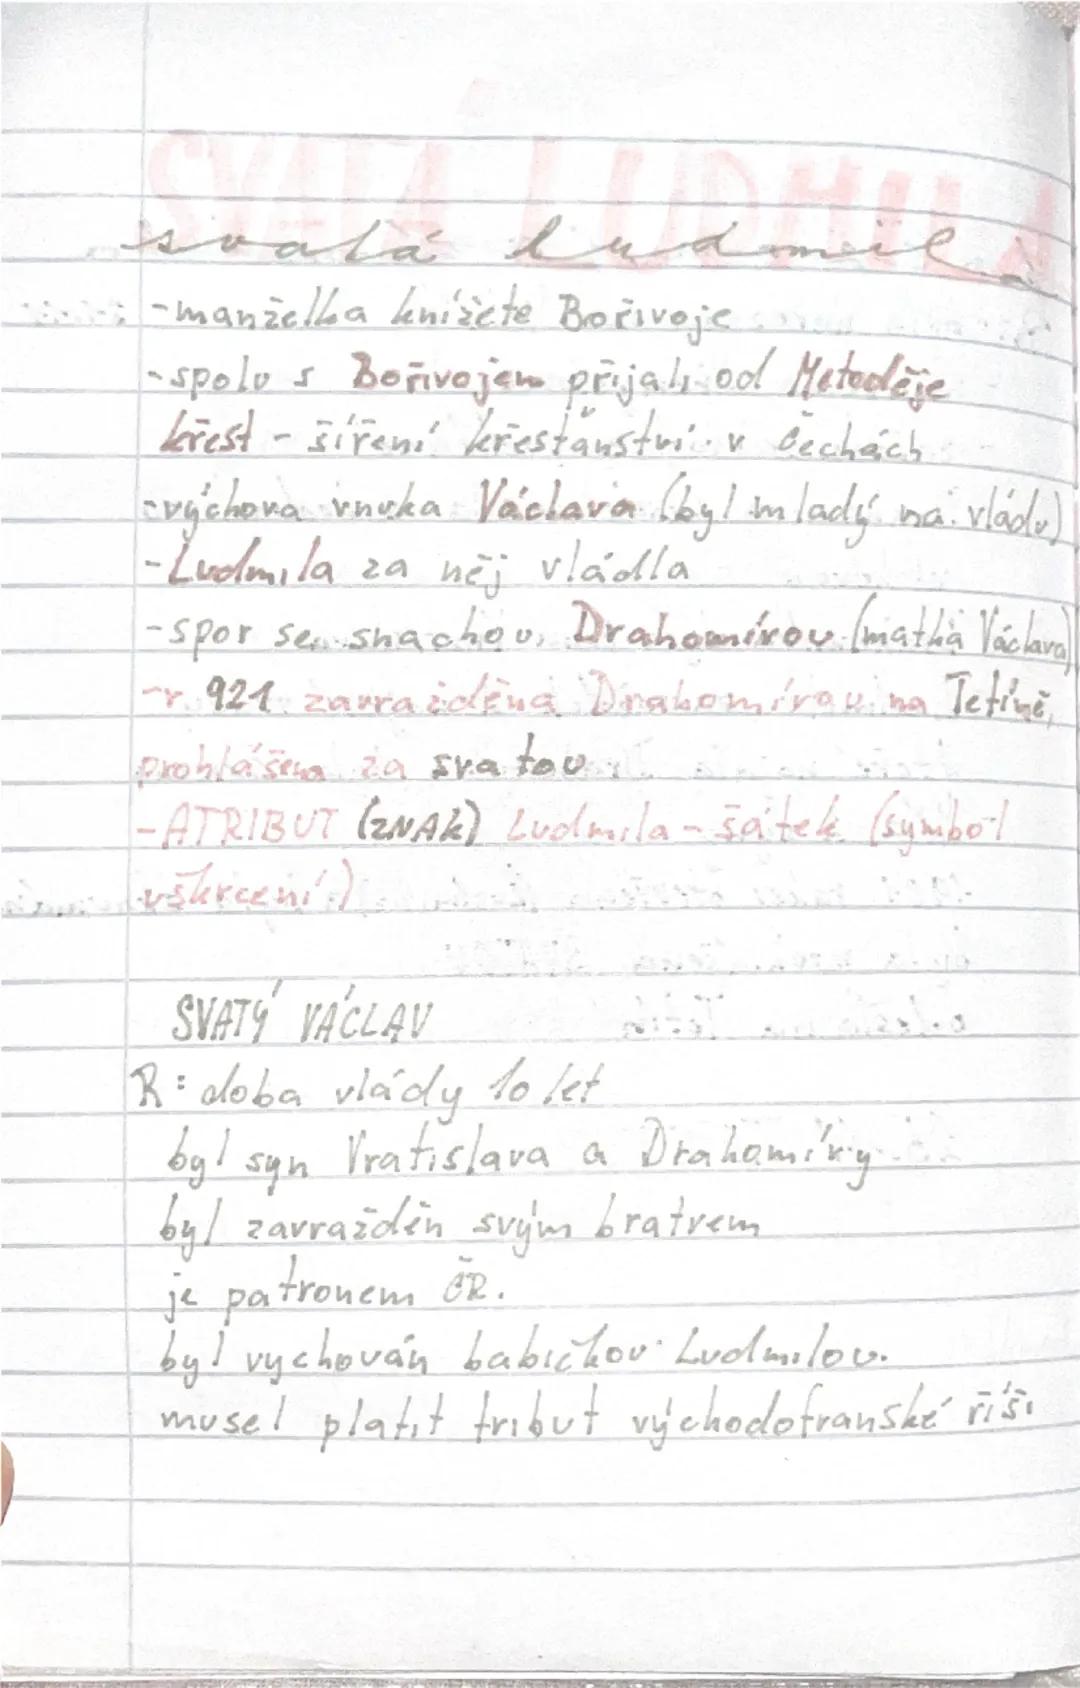 SVATÁ LUDMILA
svatá ludmila
-manželka knížete Bořivoje
-spolu s Bořivojem přijali od Metoděje
křest - šíření křestanství v čechách
-výchova vnuka Václava (byl mladý na vládu)
-Ludmila za něj vládla
-spor se snachou Drahomírou (matka Václava)
-r. 921 zavražděna Drahomírou na Tetíně,
prohlášena za svatou
-ATRIBUT (ZNAK) Ludmila - šátek (symbol
uškrcení)
SVATÝ VÁCLAV
R: doba vlády 10 let
byl syn Vratislava a Drahomíry
byl zavražděn svým bratrem
je patronem ČR.
byl vychován babičkou Ludmilou.
musel platit tribut východofranské říši